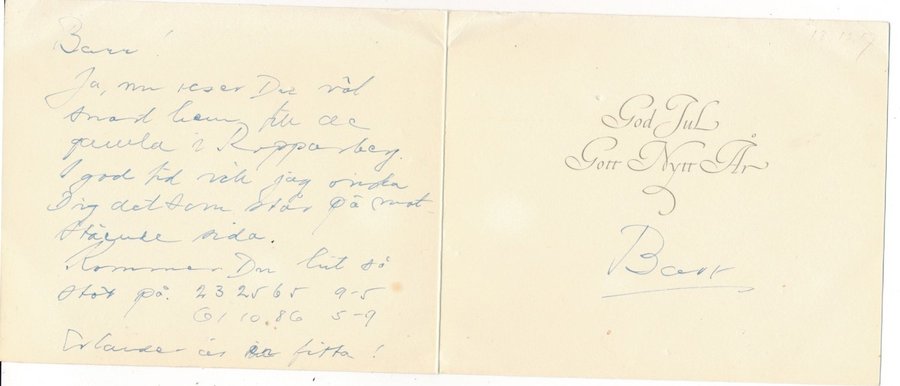 Barr!
Ja, nu reser Du väl
snart hem till de
gamla i Kopparberg.
I god tid vill jag önska
Dig det som står på mot-
stående sida.
Kommer Du hit så
stöt på. 23 25 65 9-5
61 10 86 5-9
Erlander är fitta!
God Jul
Gott Nytt År
Barr